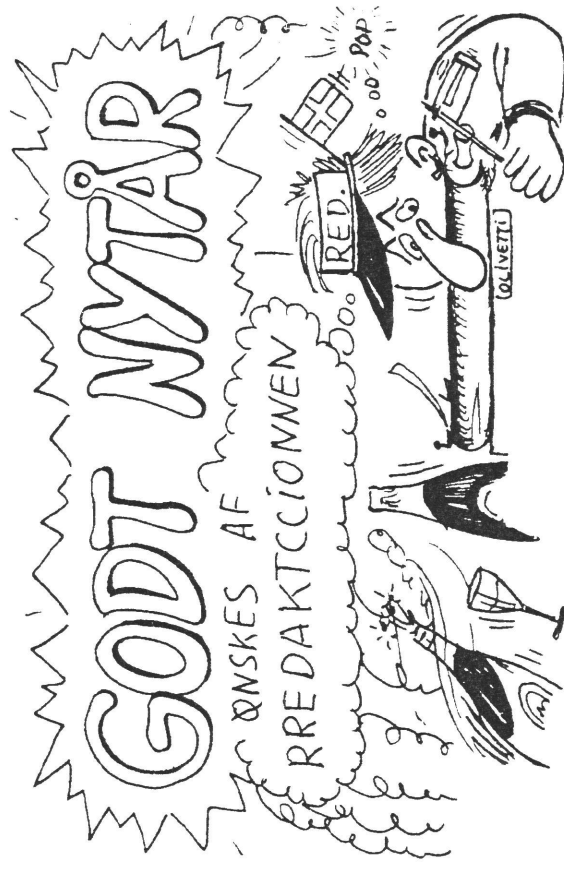 GODT NYTÅR
ØNSKES AF
RREDAKTCCIONNEN
RED.
POP
OLIVETTI